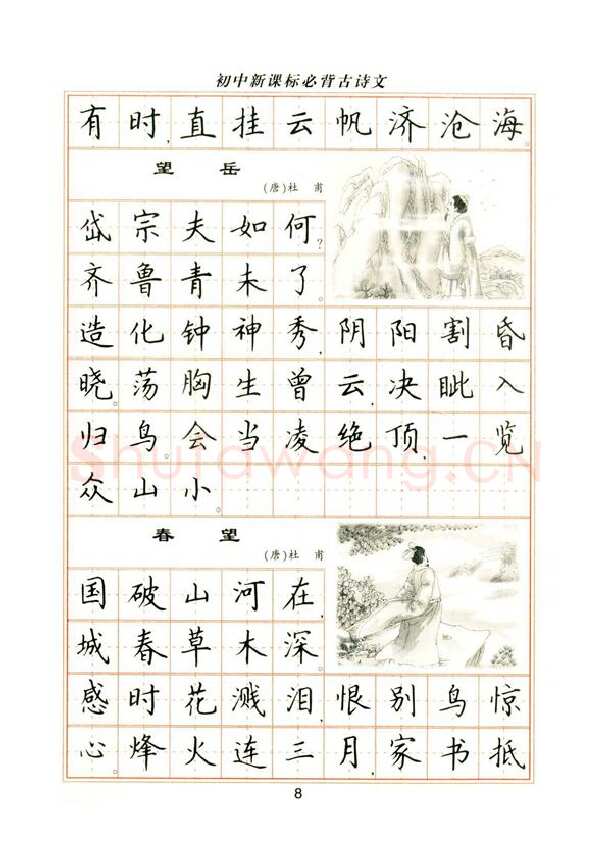 初中新课标必背古诗文
有时,直挂云帆济沧海。
望 岳
(唐)杜 甫
岱宗夫如何?
齐鲁青未了。
造化钟神秀,阴阳割昏
晓。荡胸生曾云,决眦入
归鸟。会当凌绝顶,一览
众山小。
春 望
(唐)杜 甫
国破山河在,
城春草木深。
感时花溅泪,恨别鸟惊
心。烽火连三月,家书抵
8
Shufawang.CN